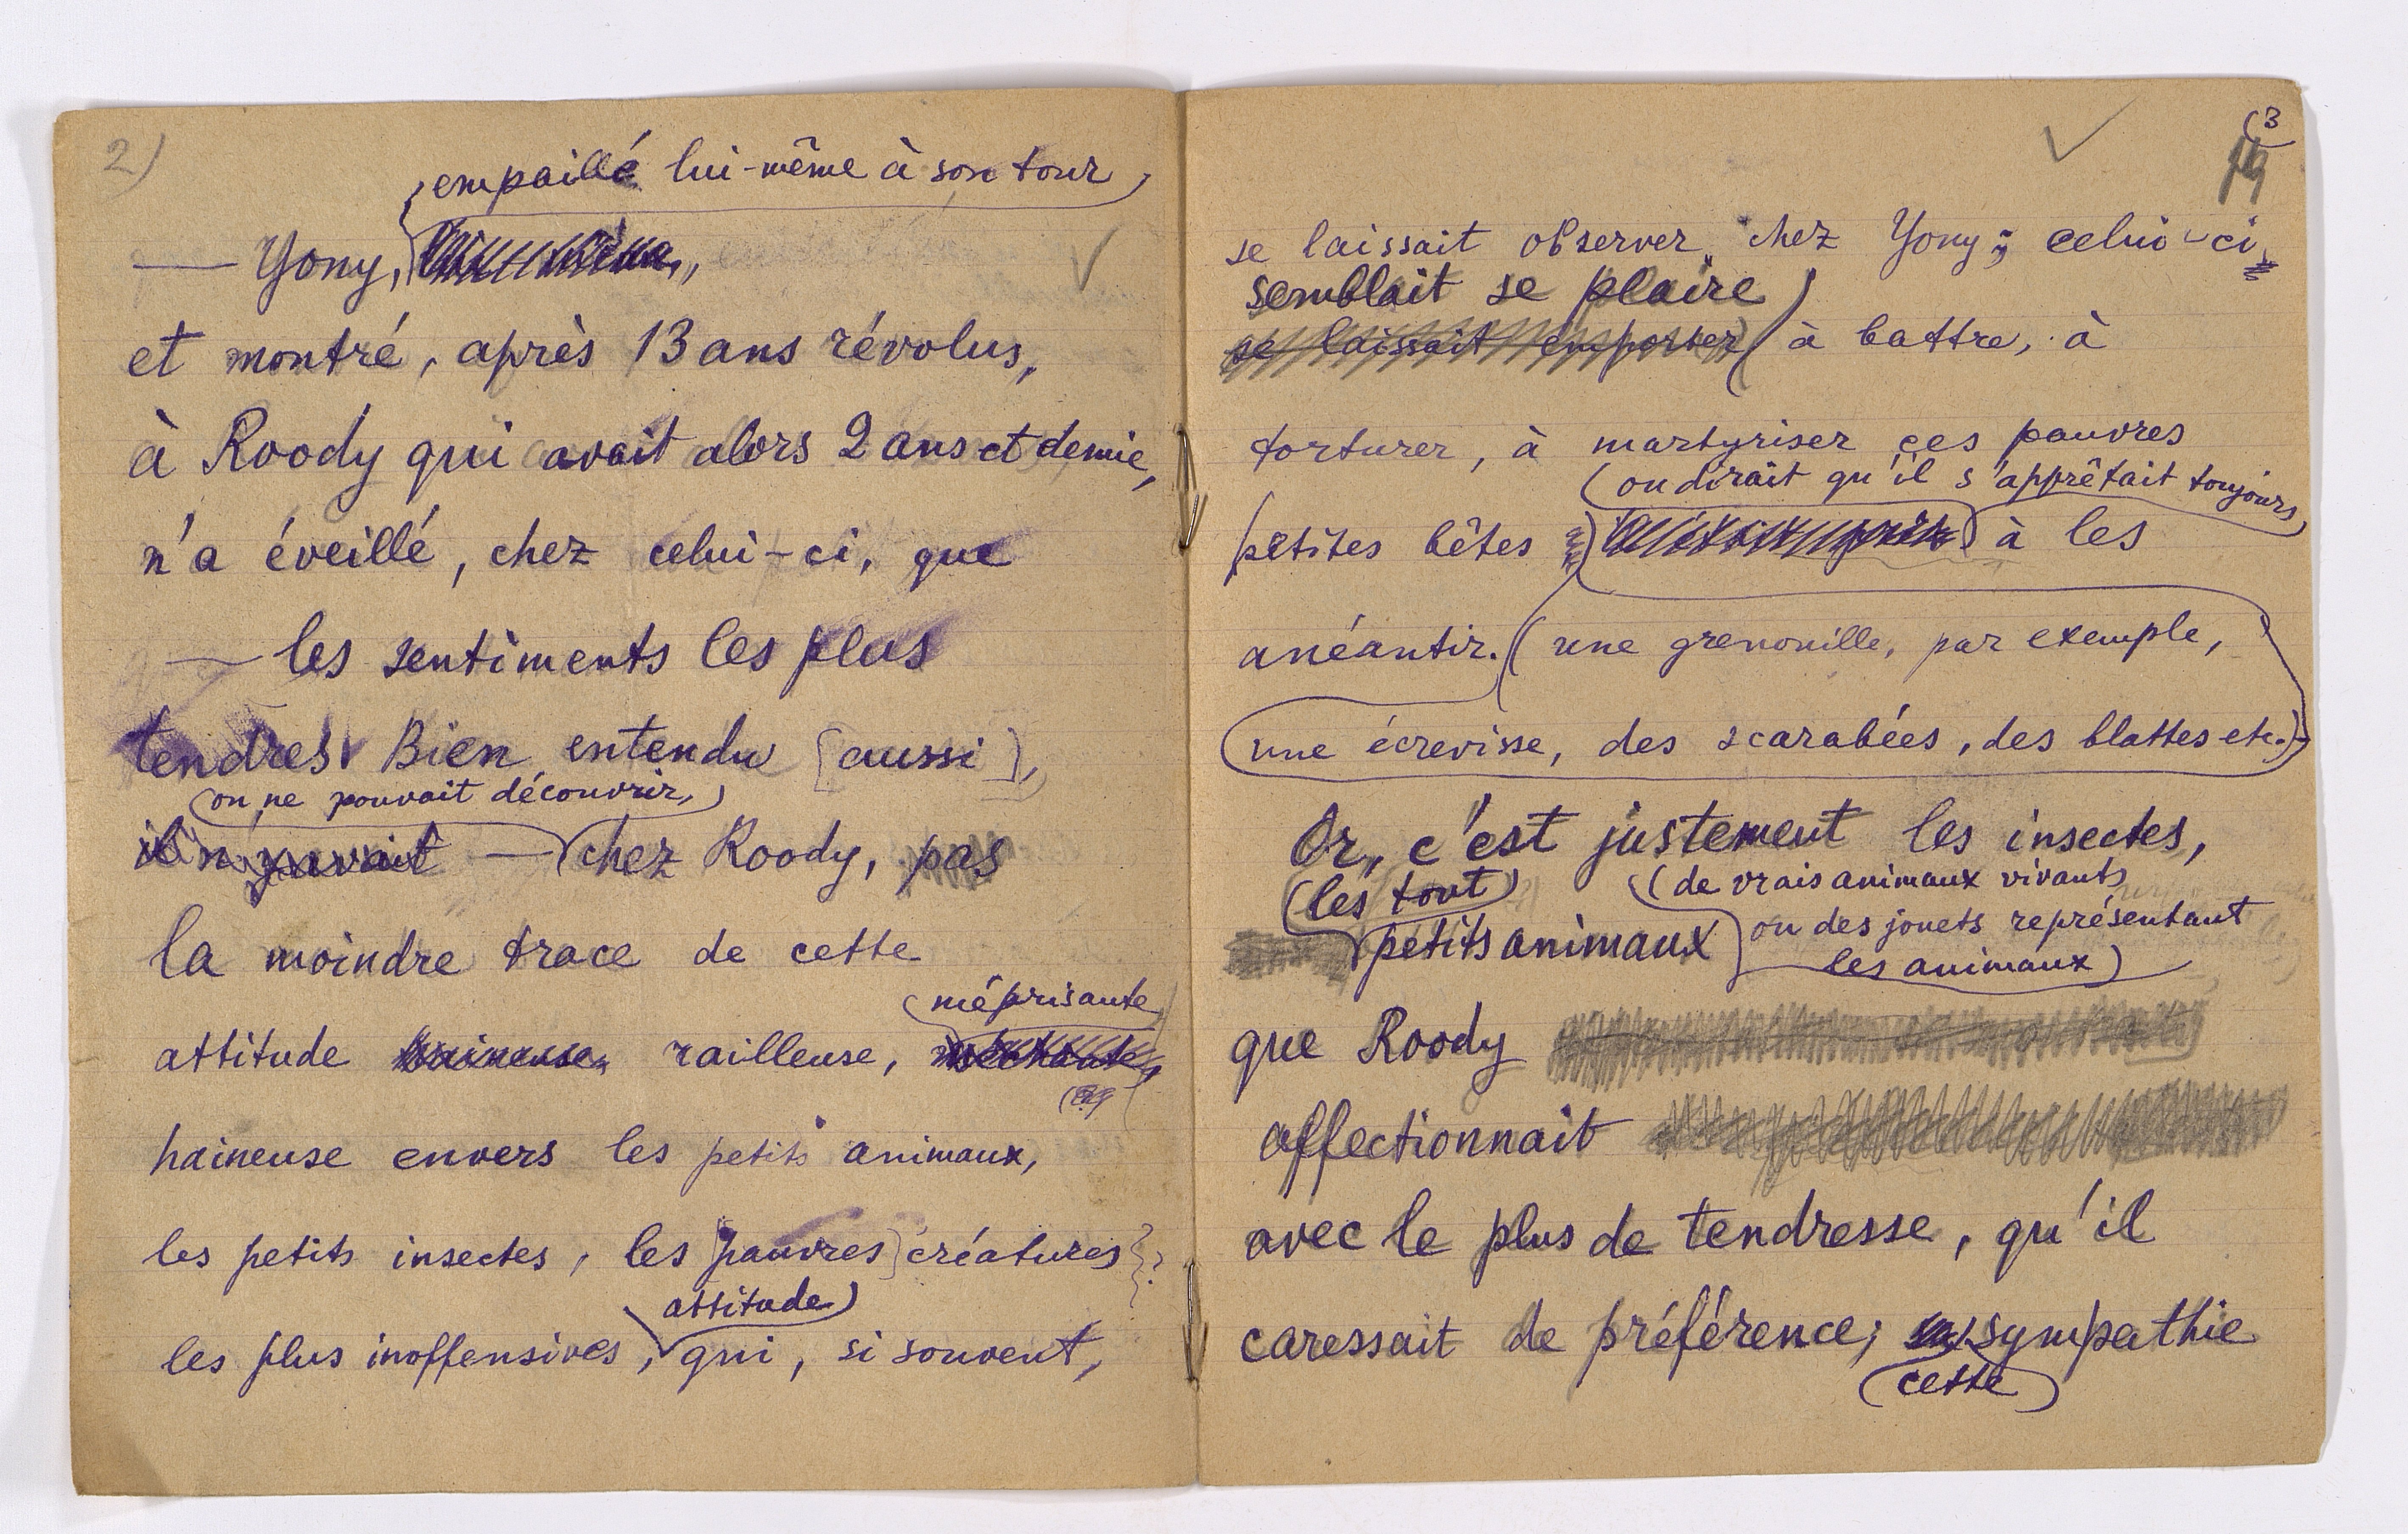 2)
empaillé lui-même à son tour,
— Yony,
et montré, après 13 ans révolus,
à Roody qui avait alors 2 ans et demie,
n'a éveillé, chez celui-ci, que
— les sentiments les plus
tendres. Bien entendu [aussi],
(on ne pouvait découvrir,)
il n'y avait — chez Roody, pas
la moindre trace de cette
méprisante
attitude haineuse, railleuse, méchante,
haineuse envers les petits animaux,
les petits insectes, les [pauvres] créatures ?
attitude)
les plus inoffensives, qui, si souvent,
(3
19
se laissait observer chez Yony; celui-ci
semblait se plaire)
se laissait emporter à battre, à
torturer, à martyriser ces pauvres
(on dirait qu'il s'apprêtait toujours)
petites bêtes à les
anéantir. (une grenouille, par exemple,
une écrevisse, des scarabées, des blattes etc.)
Or, c'est justement les insectes,
(les tout) (de vrais animaux vivants
petits animaux ou des jouets représentant
les animaux)
que Roody
affectionnait
avec le plus de tendresse, qu'il
caressait de préférence; sympathie
(cette)